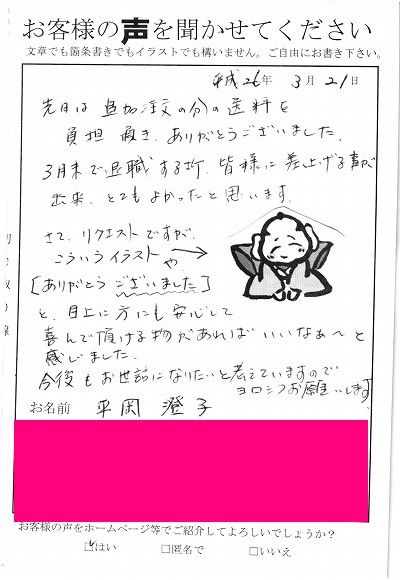 お客様の声を聞かせてください
文章でも箇条書きでもイラストでも構いません。ご自由にお書き下さい。
平成26年 3月21日
先日は追加注文の分の送料を
負担頂き、ありがとうございました。
3月末で退職する折、皆様に差上げる事が
出来、とてもよかったと思います。
さて、リクエストですが、
こういうイラスト や
[ありがとうございました]
と、目上に方にも安心して
喜んで頂ける物があればいいなぁ〜と
感じました。
今後もお世話になりたいと考えていますので
ヨロシクお願いします。
お名前 平岡 澄子
お客様の声をホームページ等でご紹介してよろしいでしょうか?
☑はい □匿名で □いいえ